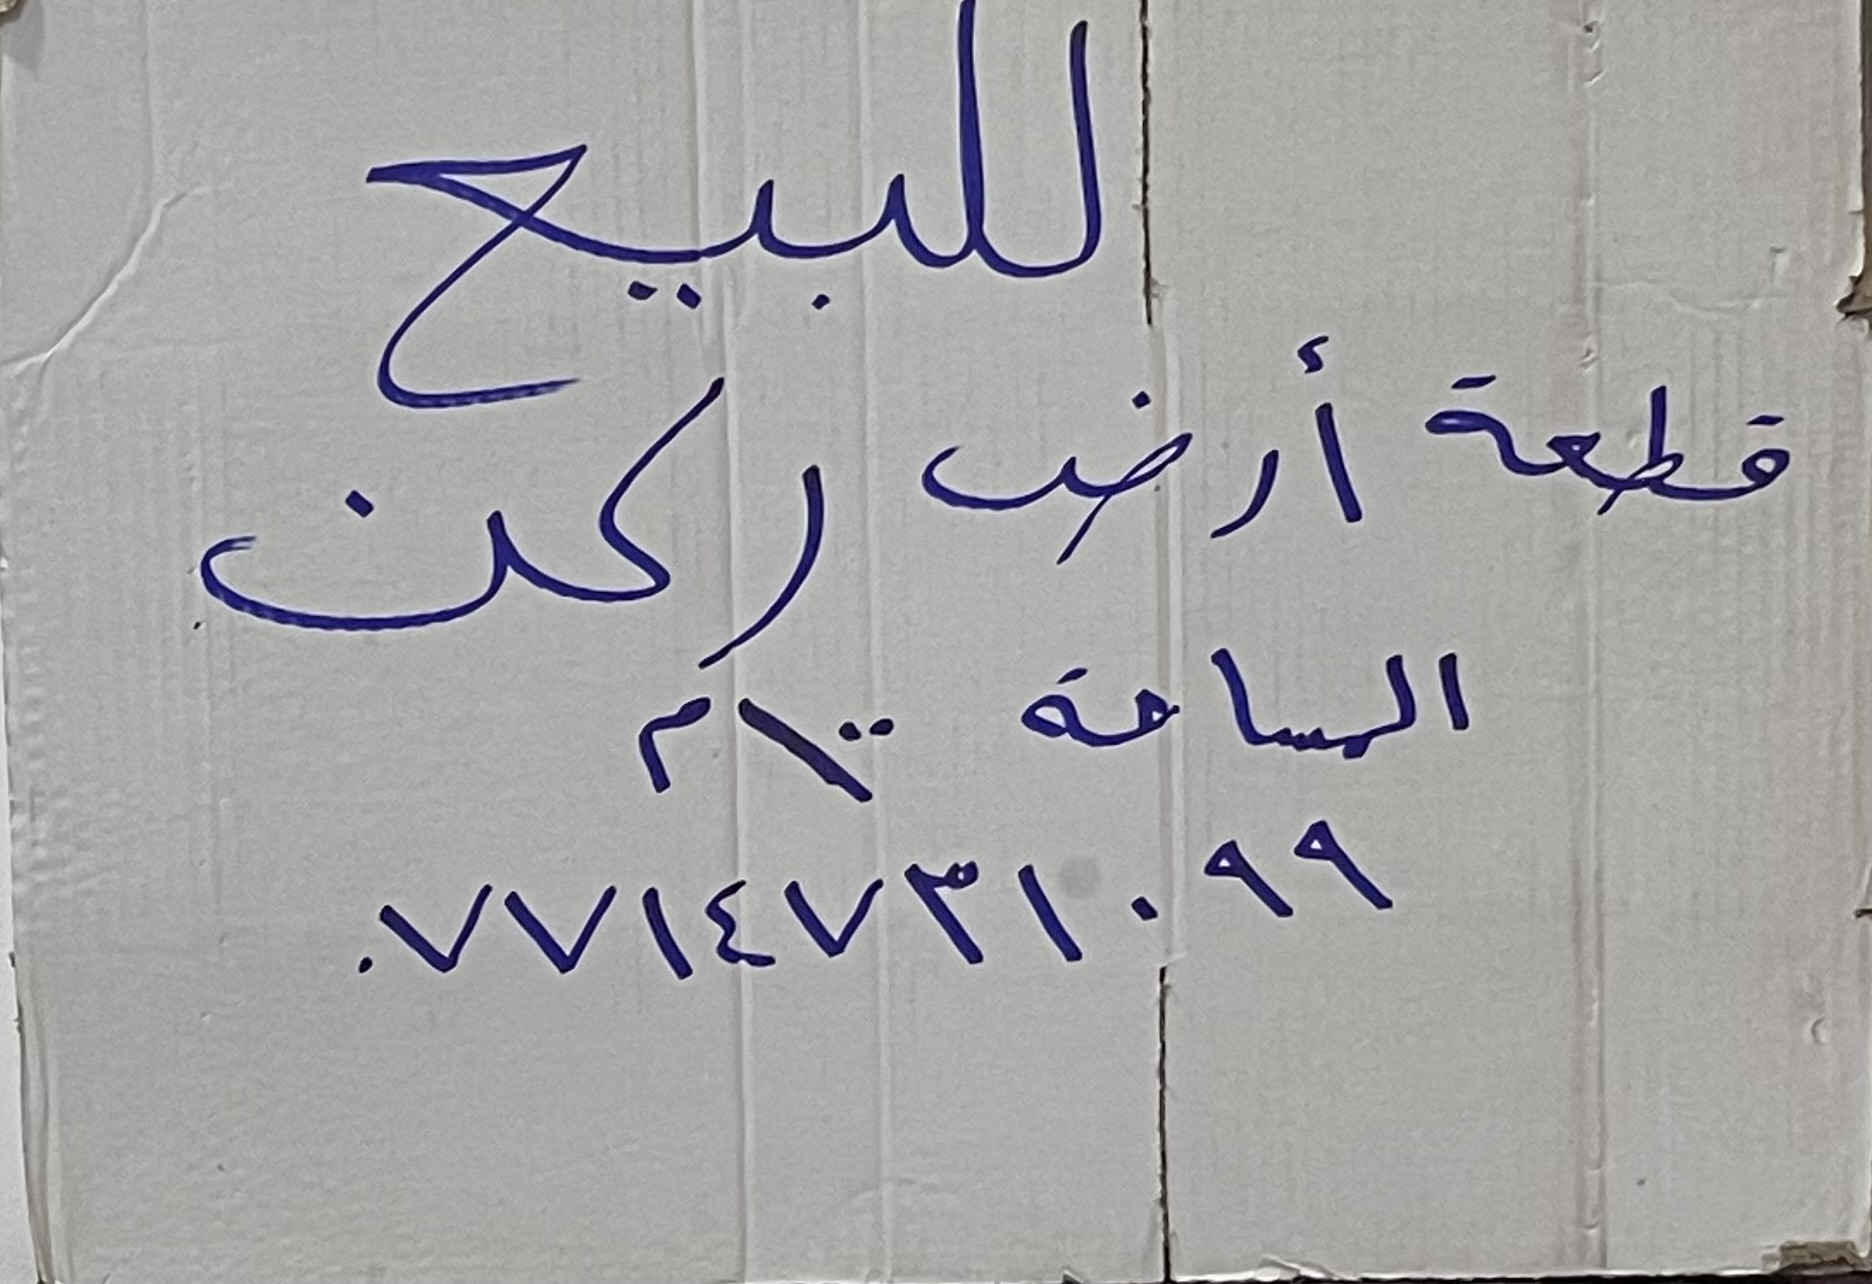 للبيع
قطعة أرض ركن
المساحة ١٠٠م
٠٧٧١٤٧٣١٠٩٩